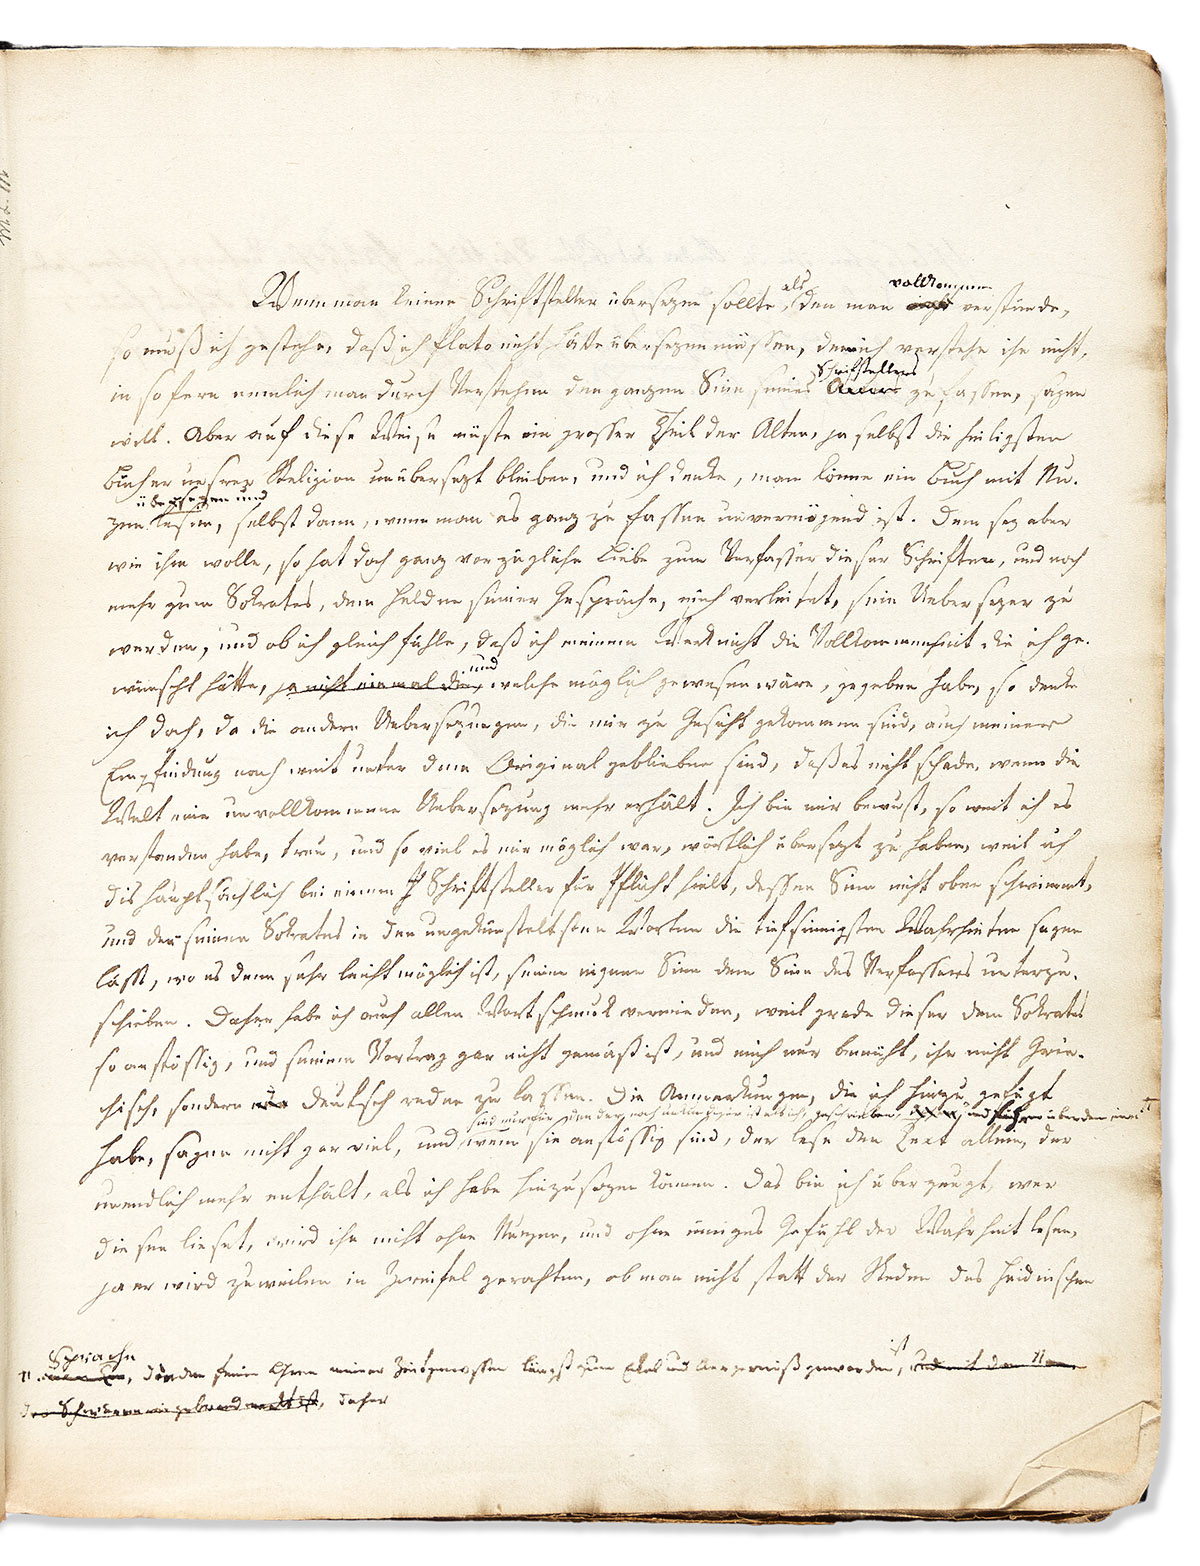 Wenn man keinen Schriftsteller übersezen sollte, als den man vollkommen verstünde,
so muß ich gestehn, daß ich Plato nicht hätte übersezen müssen, denn ich verstehe ihn nicht,
in so fern nemlich man durch Verstehen den ganzen Sinn seines Schriftstellers zu fassen, sagen
will. Aber auf diese Weise müste ein grosser Theil der Alten, ja selbst die heiligsten
Bücher unsrer Religion unübersezt bleiben, und ich denke, man könne ein Buch mit Nu-
zen übersezen und lesen, selbst dann, wenn man es ganz zu fassen unvermögend ist. Dem sey aber
wie ihm wolle, so hat doch ganz vorzügliche Liebe zum Verfasser dieser Schriften, und noch
mehr zum Sokrates, dem Helden seiner Gespräche, mich verleitet, sein Uebersezer zu
werden, und ob ich gleich fühle, daß ich meinem Werk nicht die Vollkommenheit die ich ge-
wünscht hätte, ja nicht einmal die, und welche möglich gewesen wäre, gegeben habe, so denke
ich doch, da die andern Uebersezungen, die mir zu Gesicht gekommen sind, auch meiner
Empfindung nach weit unter dem Original geblieben sind, daß es nicht schade, wenn die
Welt eine unvollkommene Uebersezung mehr erhält. Ich bin mir bewust, so weit ich es
verstanden habe, treu, und so viel es mir möglich war, wörtlich übersezt zu haben, weil ich
dis hauptsächlich bei einem Schriftsteller für Pflicht hielt, dessen Sinn nicht oben schwimmt,
und der seinen Sokrates in den ungekünsteltsten Worten die tiefsinnigsten Wahrheiten sagen
lässt, wo es denn sehr leicht möglich ist, seinen eignen Sinn dem Sinn des Verfassers unterzu-
schieben. Daher habe ich auch allen Wortschmuck vermieden, weil grade dieser dem Sokrates
so anstössig, und seinem Vortrag gar nicht gemäß ist, und mich nur bemüht, ihn nicht Grie-
chisch, sondern Deutsch reden zu lassen. Die Anmerkungen, die ich hinzu gefügt
sind nur für den der noch geschrieben und über den
habe, sagen nicht gar viel, und wem sie anstössig sind, der lese den Text allein, der
unendlich mehr enthält, als ich habe hinzusezen können. Das bin ich überzeugt, wer
diesen lieset, wird ihn nicht ohne Nuzen, und ohne inniges Gefühl der Wahrheit lesen,
ja er wird zuweilen in Zweifel gerathen, ob man nicht statt der Reden des heidnischen
Sprache
den feinen Ohren meiner Zeitgenossen längst zum Ekel und Aergerniß geworden ist, und mit dem
daher